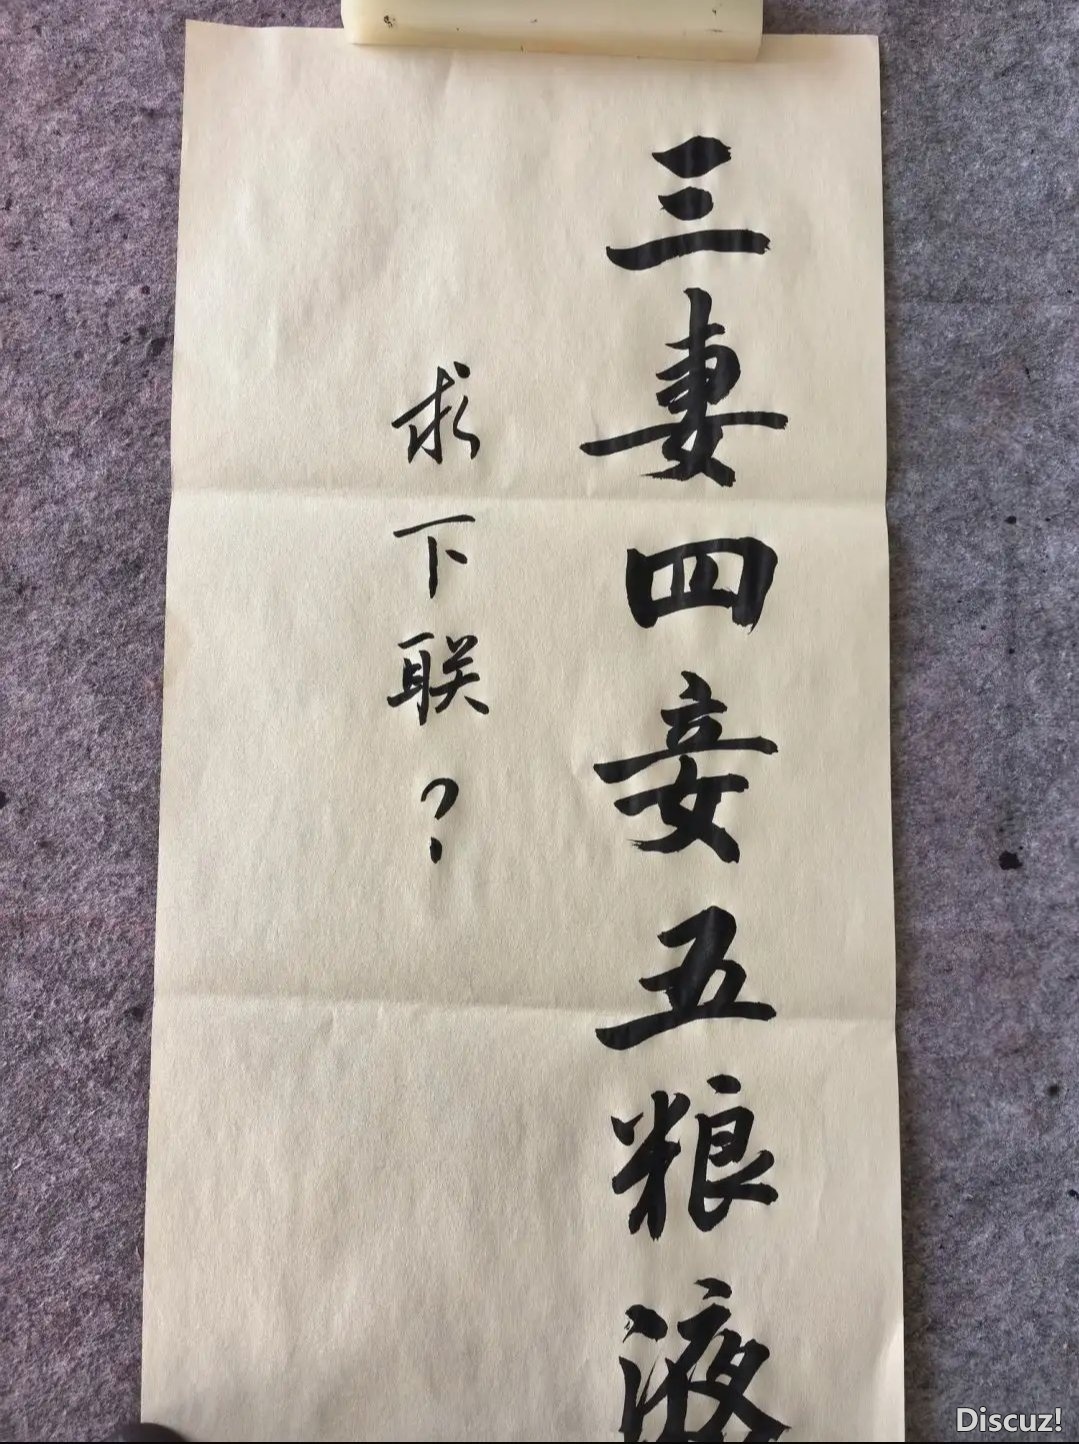 三妻四妾五粮液
求下联？
Discuz!